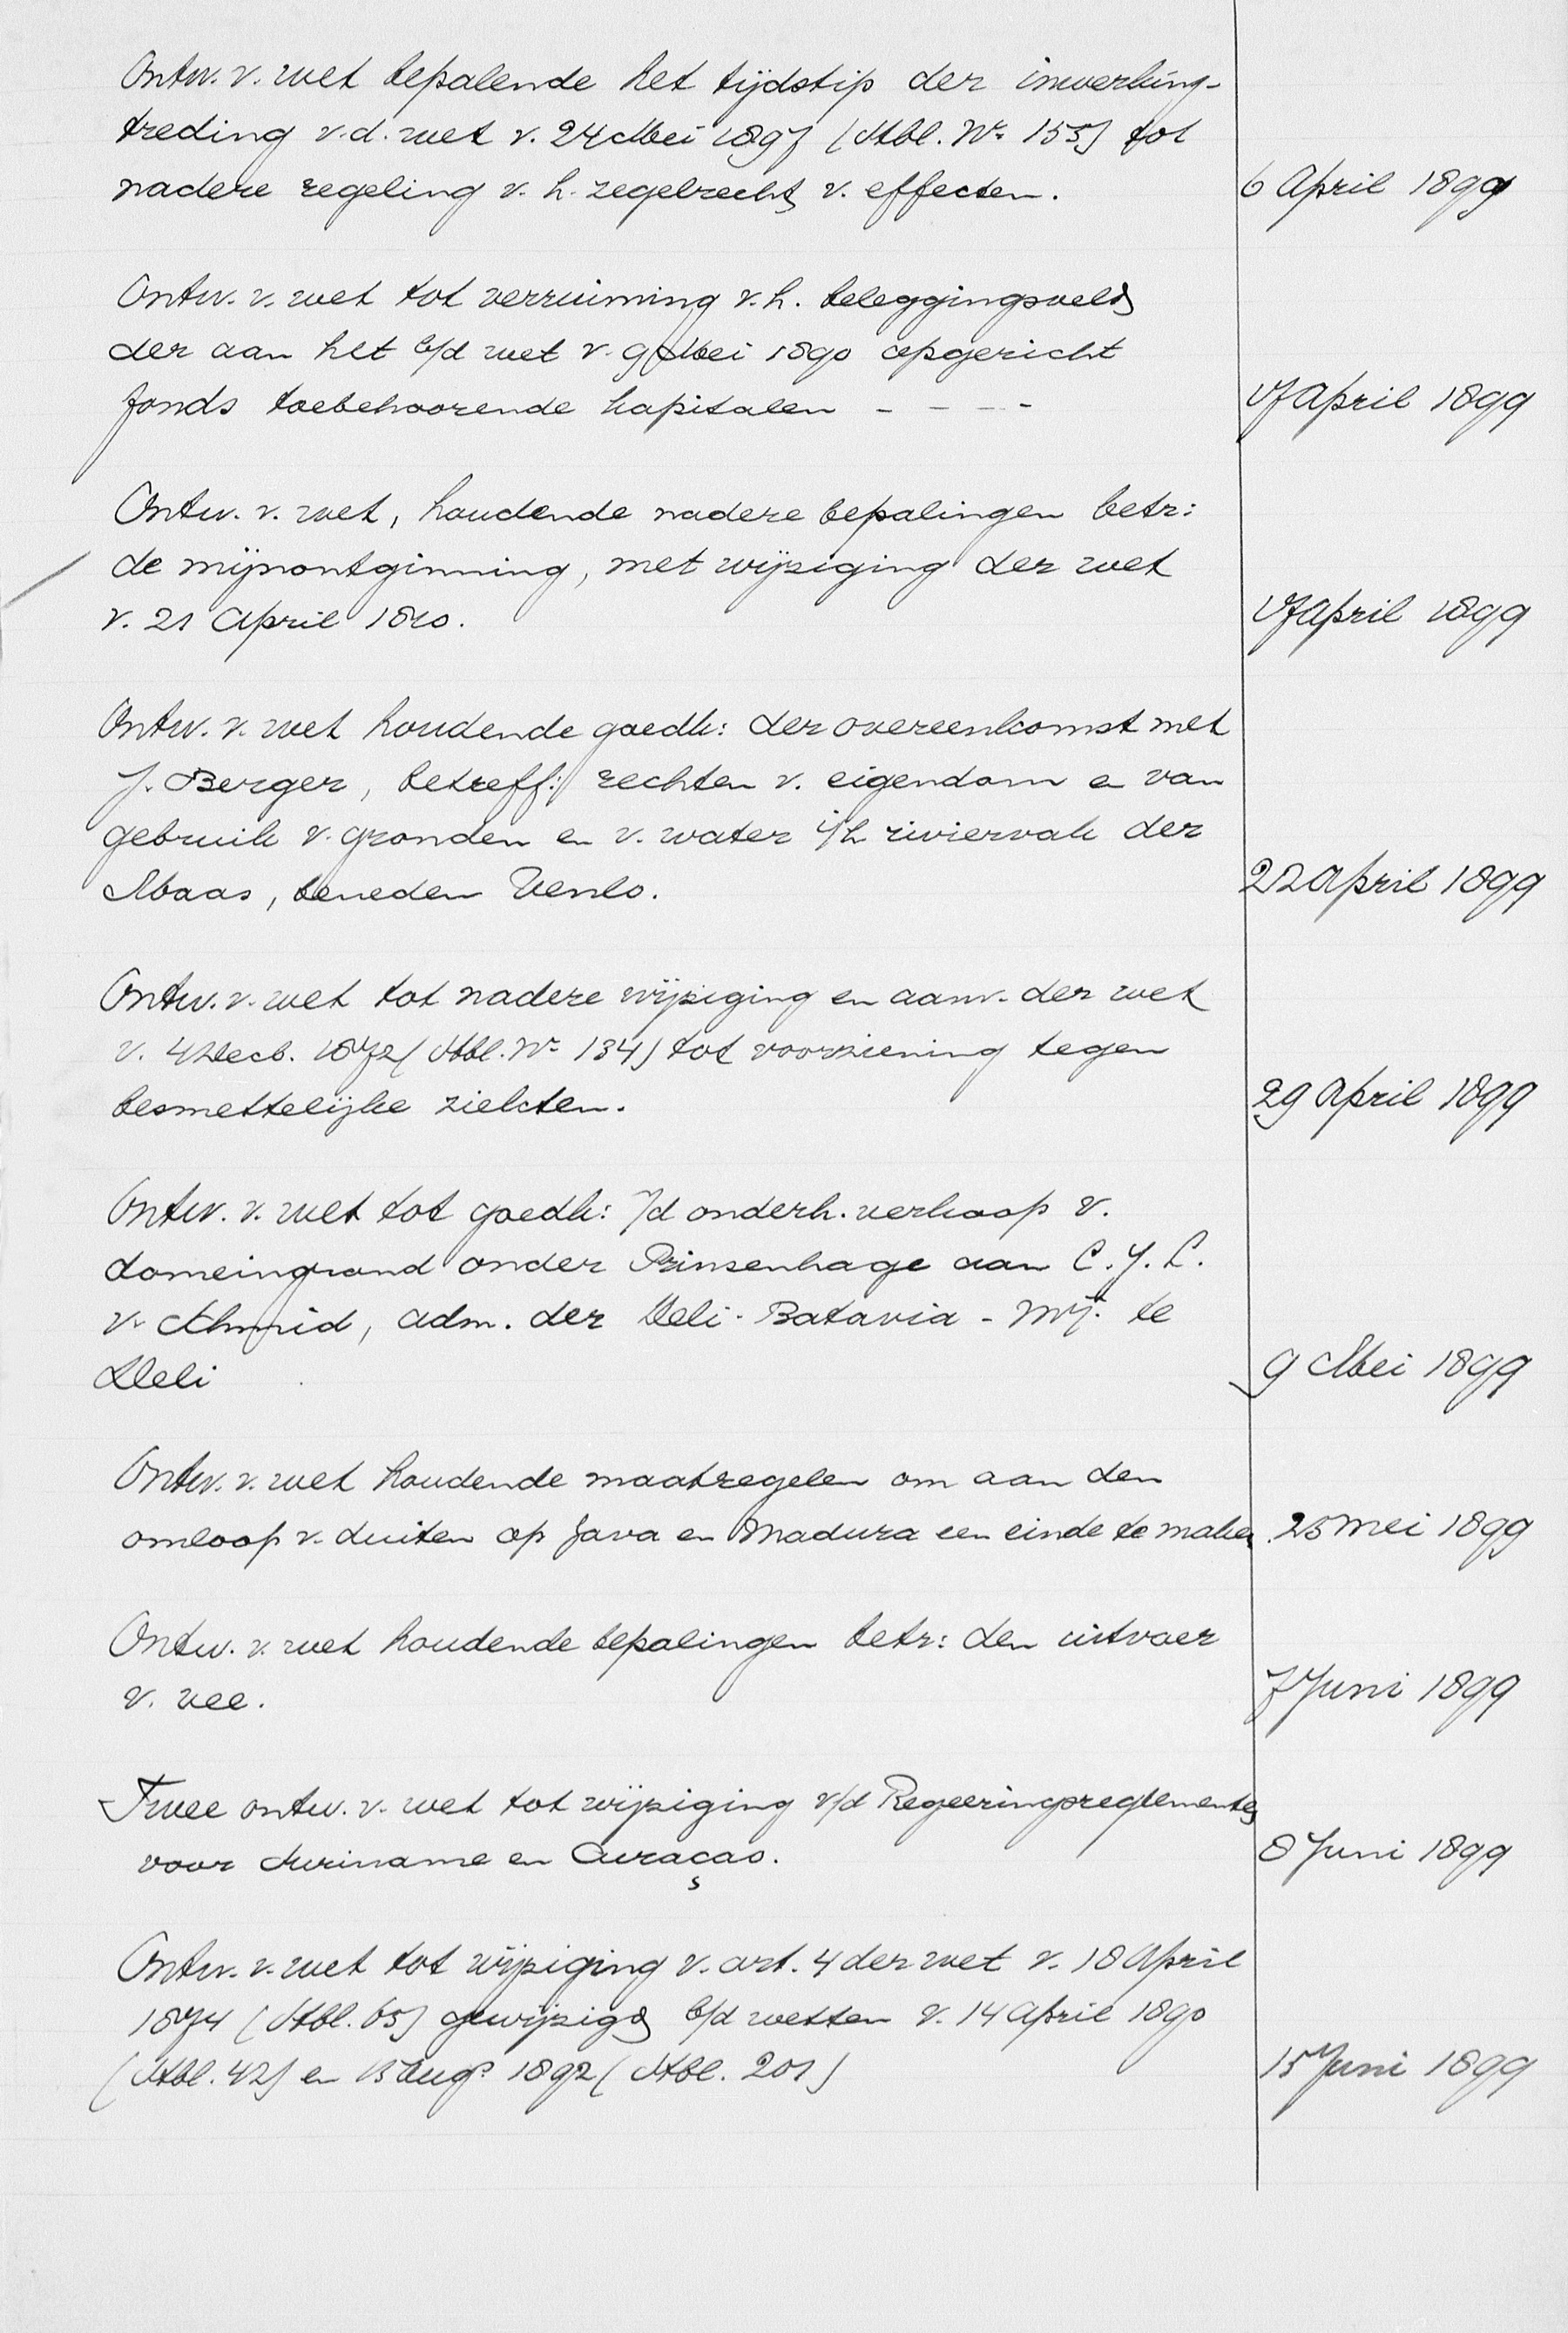 Ontw. v. wet bepalende het tijdstip der inwerking-
treding v.d. wet v. 24 Mei 1897 (Stbl. No. 155) tot
nadere regeling v. h. zegelrecht v. effecten. 6 April 1899
Ontw. v. wet tot verruiming v.h. beleggingsveld
der aan het b/d wet v. 9 Mei 1890 opgericht
fonds toebehoorende kapitalen - - - - 17 April 1899
Ontw. v. wet, houdende nadere bepalingen betr:
de mijnontginning, met wijziging der wet
v. 21 April 1810. 17 April 1899
Ontw. v. wet houdende goedk: der overeenkomst met
J. Berger, betreff: rechten v. eigendom en van
gebruik v. gronden en v. water i/h riviervak der
Maas, beneden Venlo. 22 April 1899
Ontw. v. wet tot nadere wijziging en aanv. der wet
v. 4 Decb. 1872 (Stbl. No 134) tot voorziening tegen
besmettelijke ziekten. 29 April 1899
Ontw. v. wet tot goedk: v/d onderh. verkoop v.
domeingrond onder Prinsenhage aan C. J. L.
v. Schmid, adm. der Deli-Batavia-Mij. te
Deli 9 Mei 1899
Ontw. v. wet houdende maatregelen om aan den
omloop v. duiten op Java en Madura een einde te maken. 25 Mei 1899
Ontw. v. wet houdende bepalingen betr: den uitvoer
v. vee. 7 Juni 1899
Twee ontw. v. wet tot wijziging v/d Regeeringsreglementen
voor Suriname en Curaçao. 8 Juni 1899
Ontw. v. wet tot wijziging v. art. 4 der wet v. 18 April
1874 (Stbl. 65) gewijzigd b/d wetten v. 14 April 1890
(Stbl. 42) en 15 Aug. 1892 (Stbl. 201) 15 Juni 1899